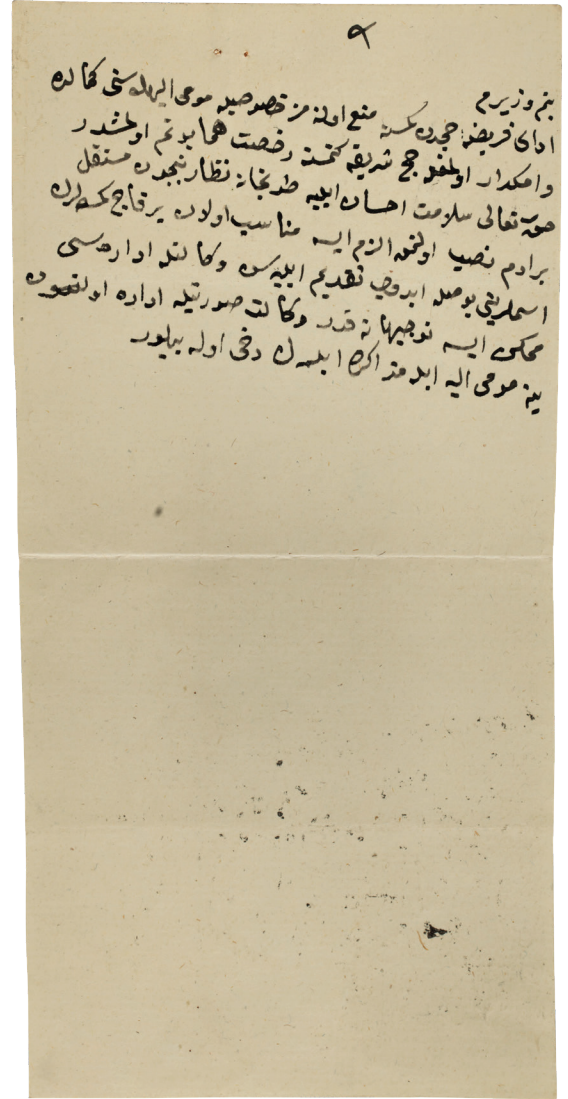 بنم وزيرم
اداى فريضهٔ حجدن كمسنه منع اولنه مز خصوصيله مومى اليهك سنى كمالده
وامكدار اولمغله حج شريفه كتمسنه رخصت همايونم اولمشدر
حق تعالى سلامت احسان ايليه طوبخانه نظارتنجون مستقل
برادم نصب اولنمق الزم ايسه مناسب اولان بر قاچ كمسه لرك
اسملرينى بوصله ايدوب تقديم ايليه سن وكالتله اداره سى
ممكن ايسه توجيهاته قدر وكالت صورتيله اداره اولنسون
ينه مومى اليه ايله مذاكره ايلمك دخى اوله بيلور